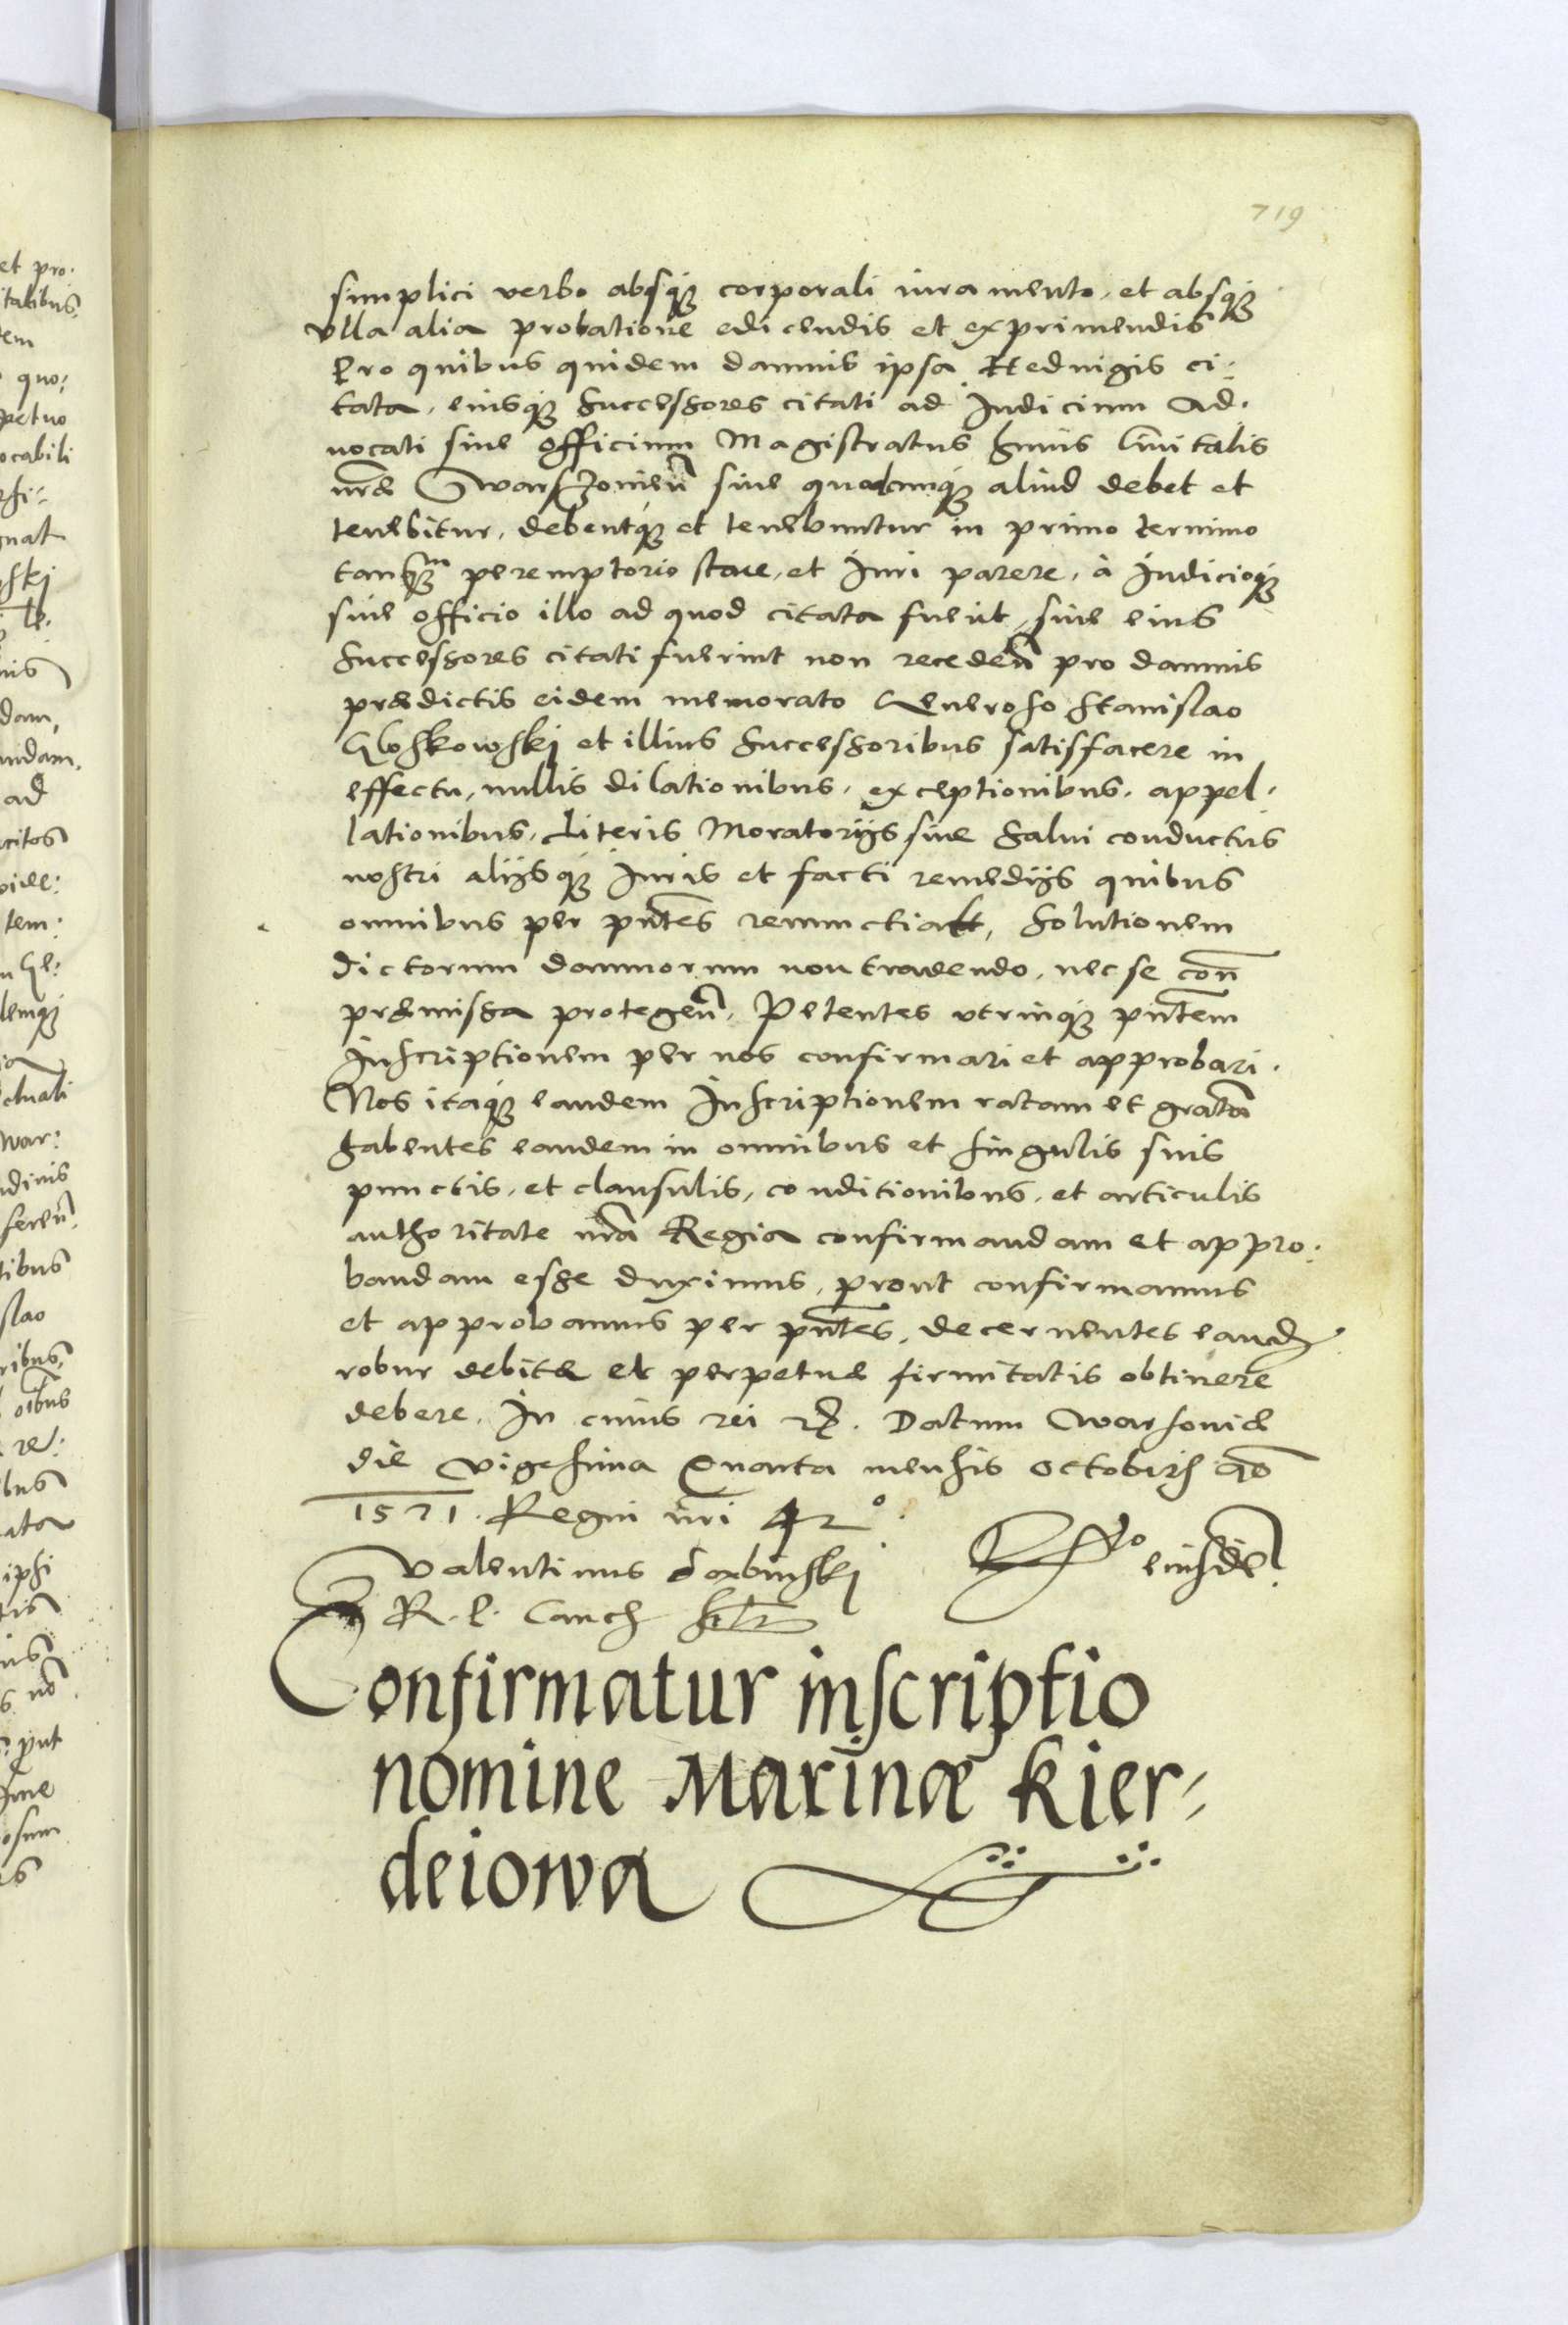 719
simplici verbo absq; corporali iuramento, et absq;
vlla alia probatione edicendis et exprimendis
Pro quibus quidem damnis ipsa Heduigis ci-
tata, eiusq; successores citati ad Iudicium Ad-
uocati siue officium Magistratus huius Ciuitatis
nrae Warszouien̄ siue quodcunq; aliud debet et
tenebitur, debentq; et tenebuntur in primo termino
tanq̃m peremptorio stare, et Iuri parere, à Iudicioq;
siue officio illo ad quod citata fuerit, siue eius
successores citati fuerint non receden̄ pro damnis
praedictis eidem memorato Generoso Stanislao
Gloskowskj et illius successoribus satisfacere in
effectu, nullis dilationibus, exceptionibus, appel-
lationibus, Literis Moratorijs siue salui conductus
nostri alijsq; Iuris et facti remedijs quibus
omnibus per pn̄tes renunctiat, solutionem
dictorum damnorum non tradendo, nec se con̄
praemissa protegen̄. Petentes vtrinq; pn̄tem
Inscriptionem per nos confirmari et approbari.
Nos itaq; eandem Inscriptionem ratam et gratā
habentes eandem in omnibus et singulis suis
punctis, et clausulis, conditionibus, et articulis
authoritate nrā Regia confirmandam et appro-
bandam esse duximus, prout confirmamus
et approbamus per pn̄tes, decernentes eand
robur debitae et perpetuae firmitatis obtinere
debere. In cuius rei &. Datum Warsouiae
die Vigesima Quarta mensis Octobris aō
1571. Regni nr̄i 42°.
Valentinus Dȩbinskj
R. P. Canc
eiusdē
Confirmatur inscriptio
nomine Marinæ Kier-
deiowa